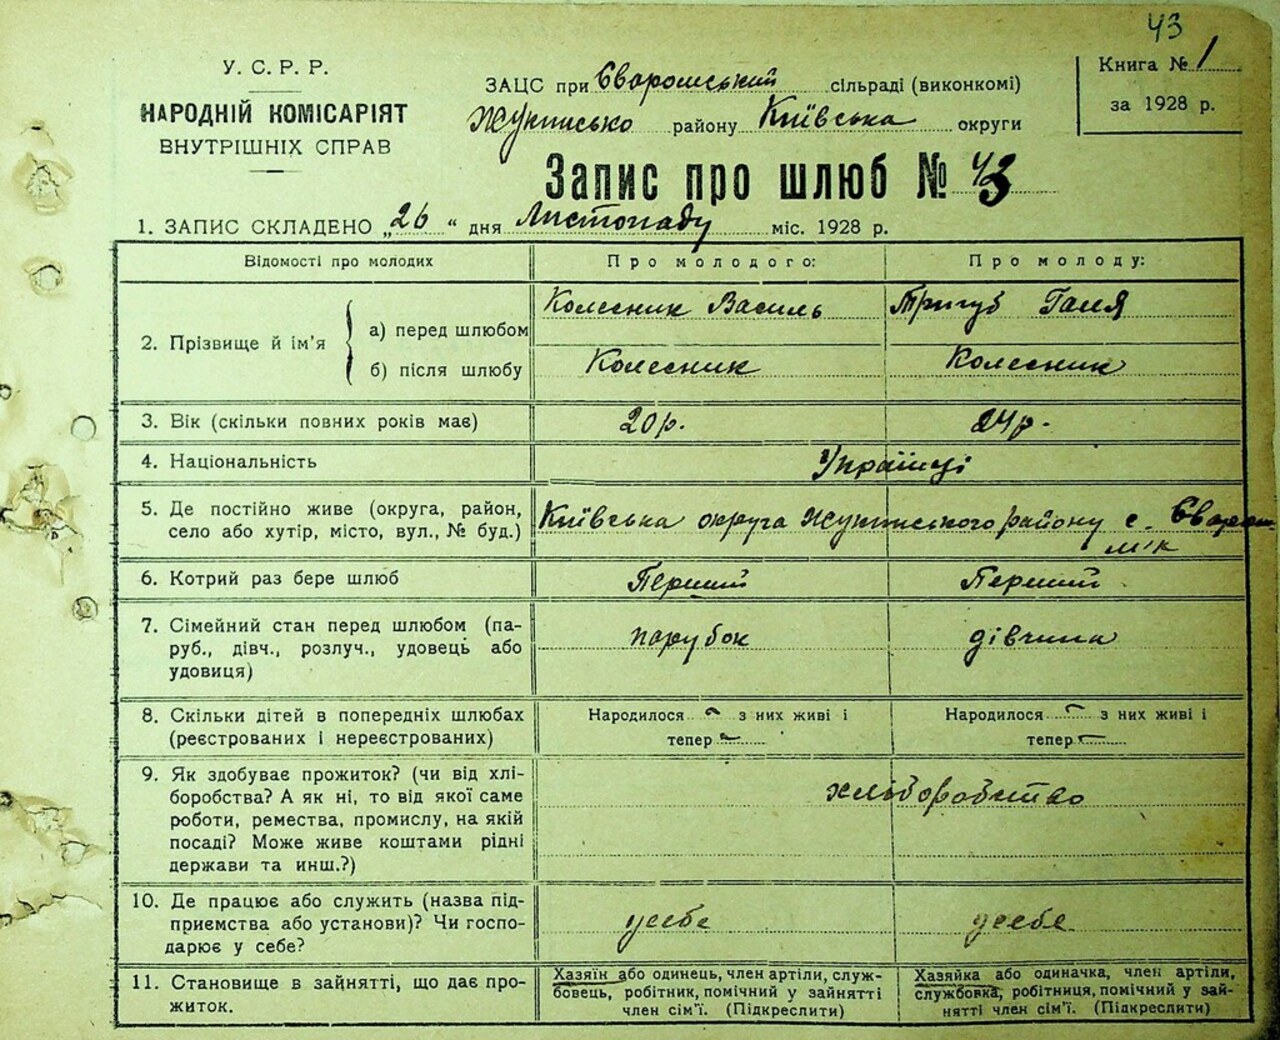 43
У. С. Р. Р.
НАРОДНІЙ КОМІСАРІЯТ
ВНУТРІШНІХ СПРАВ
ЗАЦС при сільраді (виконкомі)
району Київська округи
Книга № 1
за 1928 р.
Запис про шлюб № 43
1. ЗАПИС СКЛАДЕНО „26“ дня Листопаду міс. 1928 р.
Відомості про молодих
Про молодого:
Про молоду:
2. Прізвище й ім’я
а) перед шлюбом
Колесник Василь
Тригуб Галя
б) після шлюбу
Колесник
Колесник
3. Вік (скільки повних років має)
20р.
24р.
4. Національність
Українці
5. Де постійно живе (округа, район,
село або хутір, місто, вул., № буд.)
Київська округа району с.
6. Котрий раз бере шлюб
Перший
Перший
7. Сімейний стан перед шлюбом (па-
руб., дівч., розлуч., удовець або
удовиця)
парубок
дівчина
8. Скільки дітей в попередніх шлюбах
(реєстрованих і нереєстрованих)
Народилося - з них живі і
тепер -
Народилося - з них живі і
тепер -
9. Як здобуває прожиток? (чи від хлі-
боробства? А як ні, то від якої саме
роботи, ремества, промислу, на якій
посаді? Може живе коштами рідні
держави та инш.?)
хліборобство
10. Де працює або служить (назва під-
приємства або установи)? Чи госпо-
дарює у себе?
усебе
усебе
11. Становище в зайнятті, що дає про-
житок.
Хазяїн або одинець, член артіли, служ-
бовець, робітник, помічний у зайнятті
член сім’ї. (Підкреслити)
Хазяйка або одиначка, член артіли,
службовка, робітниця, помічний у зай-
нятті член сім’ї. (Підкреслити)